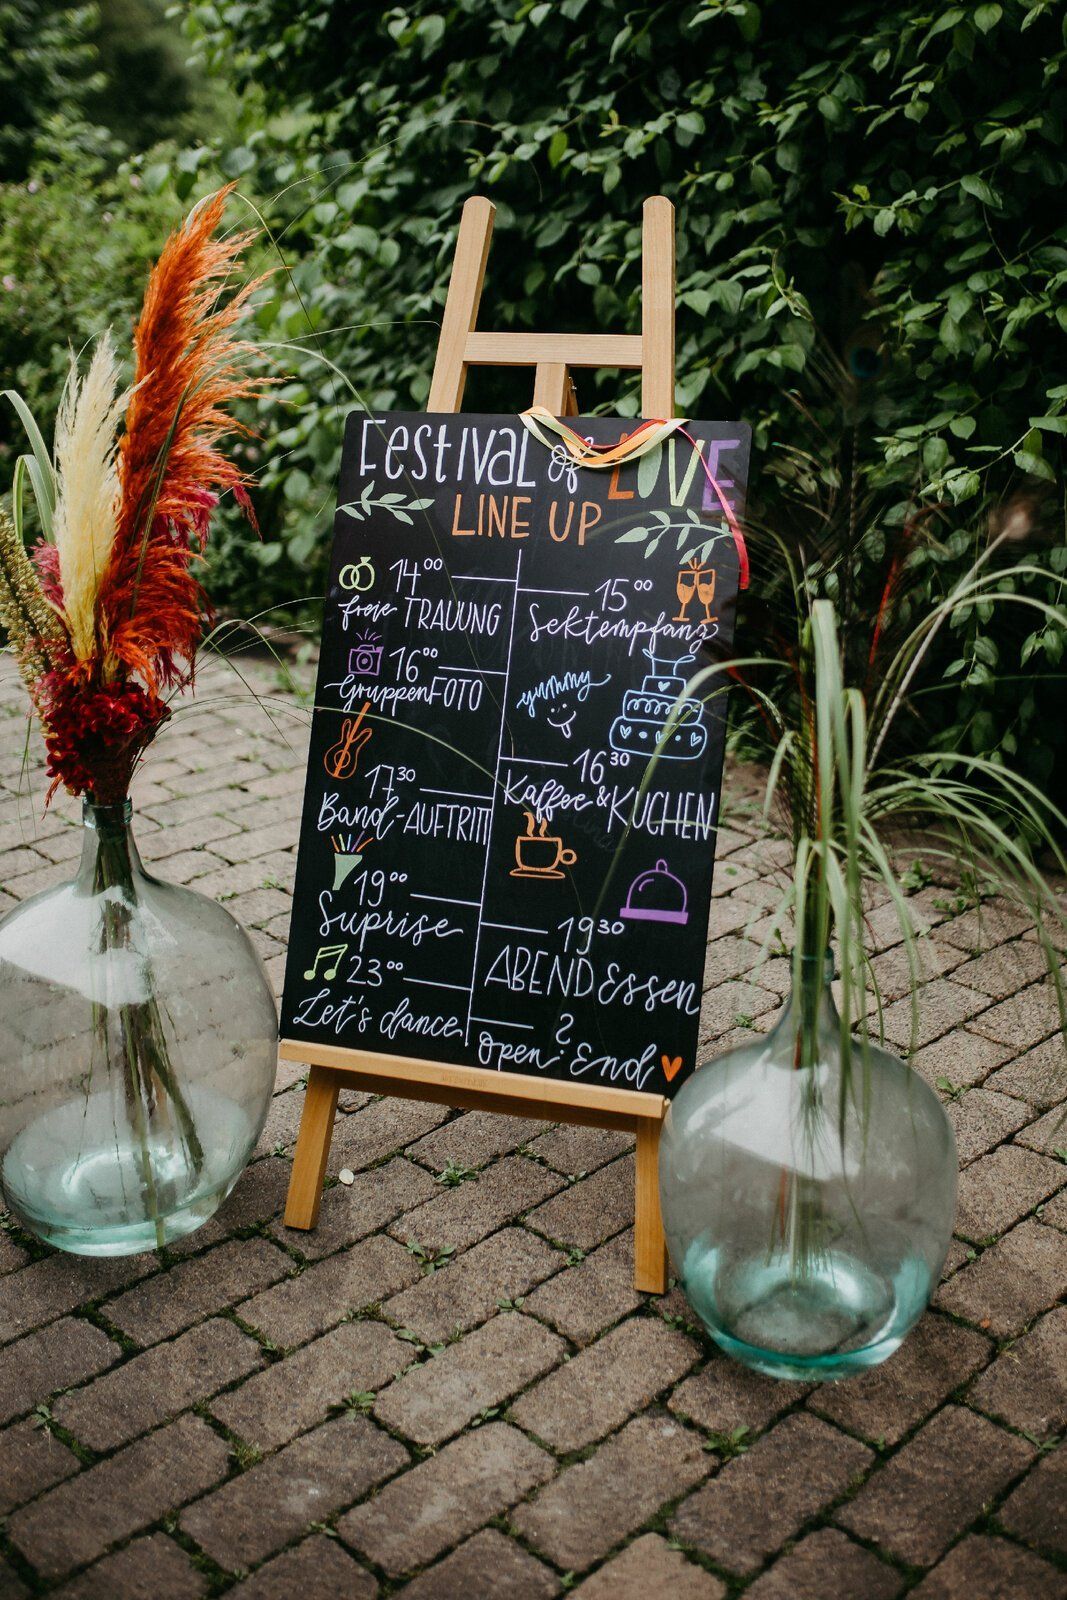 Festival of LOVE
LINE UP
14⁰⁰
freie TRAUUNG
15⁰⁰
Sektempfang
16⁰⁰
GruppenFOTO
yummy
16³⁰
Kaffee & KUCHEN
17³⁰
Band-AUFTRITT
19⁰⁰
Suprise
19³⁰
ABENDEssen
23⁰⁰
Let's dance
?
Open End